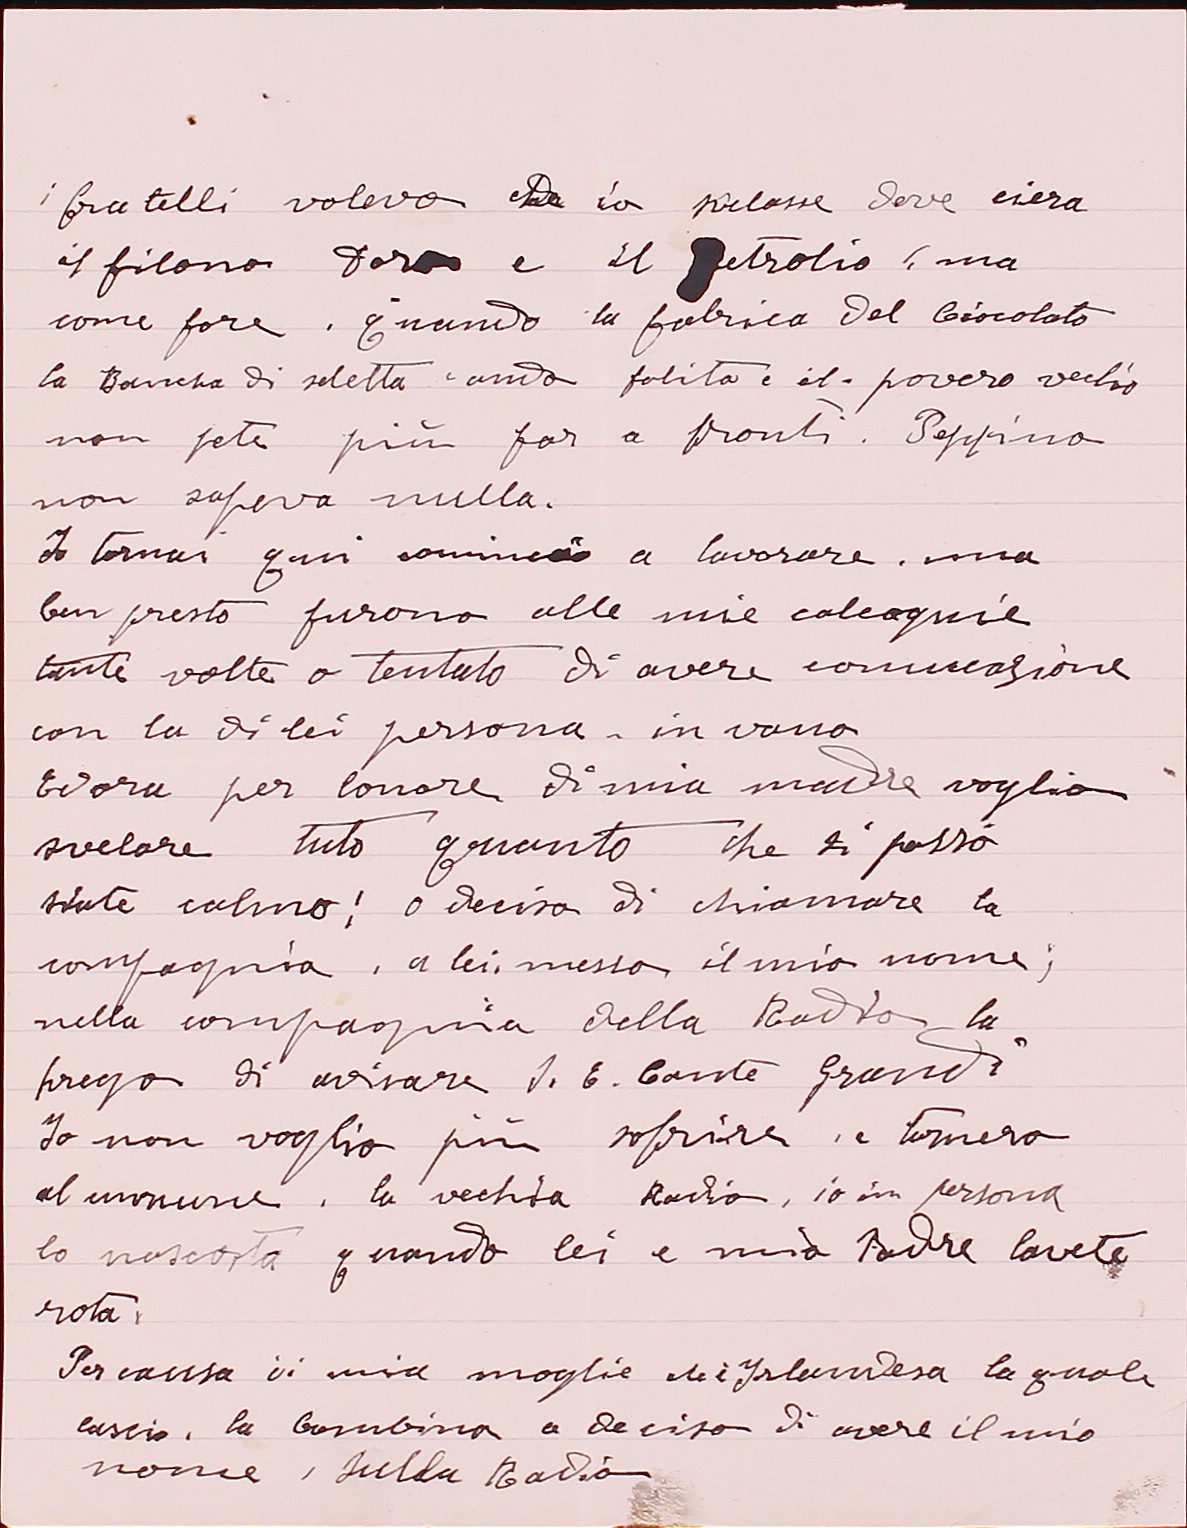 i fratelli voleva che io svelasse dove ciera
il filono doro e il petrolio, ma
come fare. quando la fabrica del Ciocolato
la Bancha di seletta ando falita e il povero vechio
non pote più far a fronti. Peppino
non sapeva nulla.
Io tornai qui cominciò a lavorare. ma
ben presto furono alle mie calcagnie
tante volte o tentato di avere comunicazione
con la di lei persona - in vano
Edora per lonore di mia madre voglio
svelare tuto quanto che si passò
siate calmo! o deciso di chiamare la
compagnia, a lei messo il mio nome;
nella compagnia della Radio la
prego di avisare S. E. Conte Grandi
Io non voglio più sofrire, e tornero
al comune, la vechia Radio, io in persona
lo nascosta quando lei e mio Padre lavete
rota.
Per causa di mia moglie di Yrlandesa la quale
lascio, la bambina a deciso di avere il mio
nome, sulla Radio